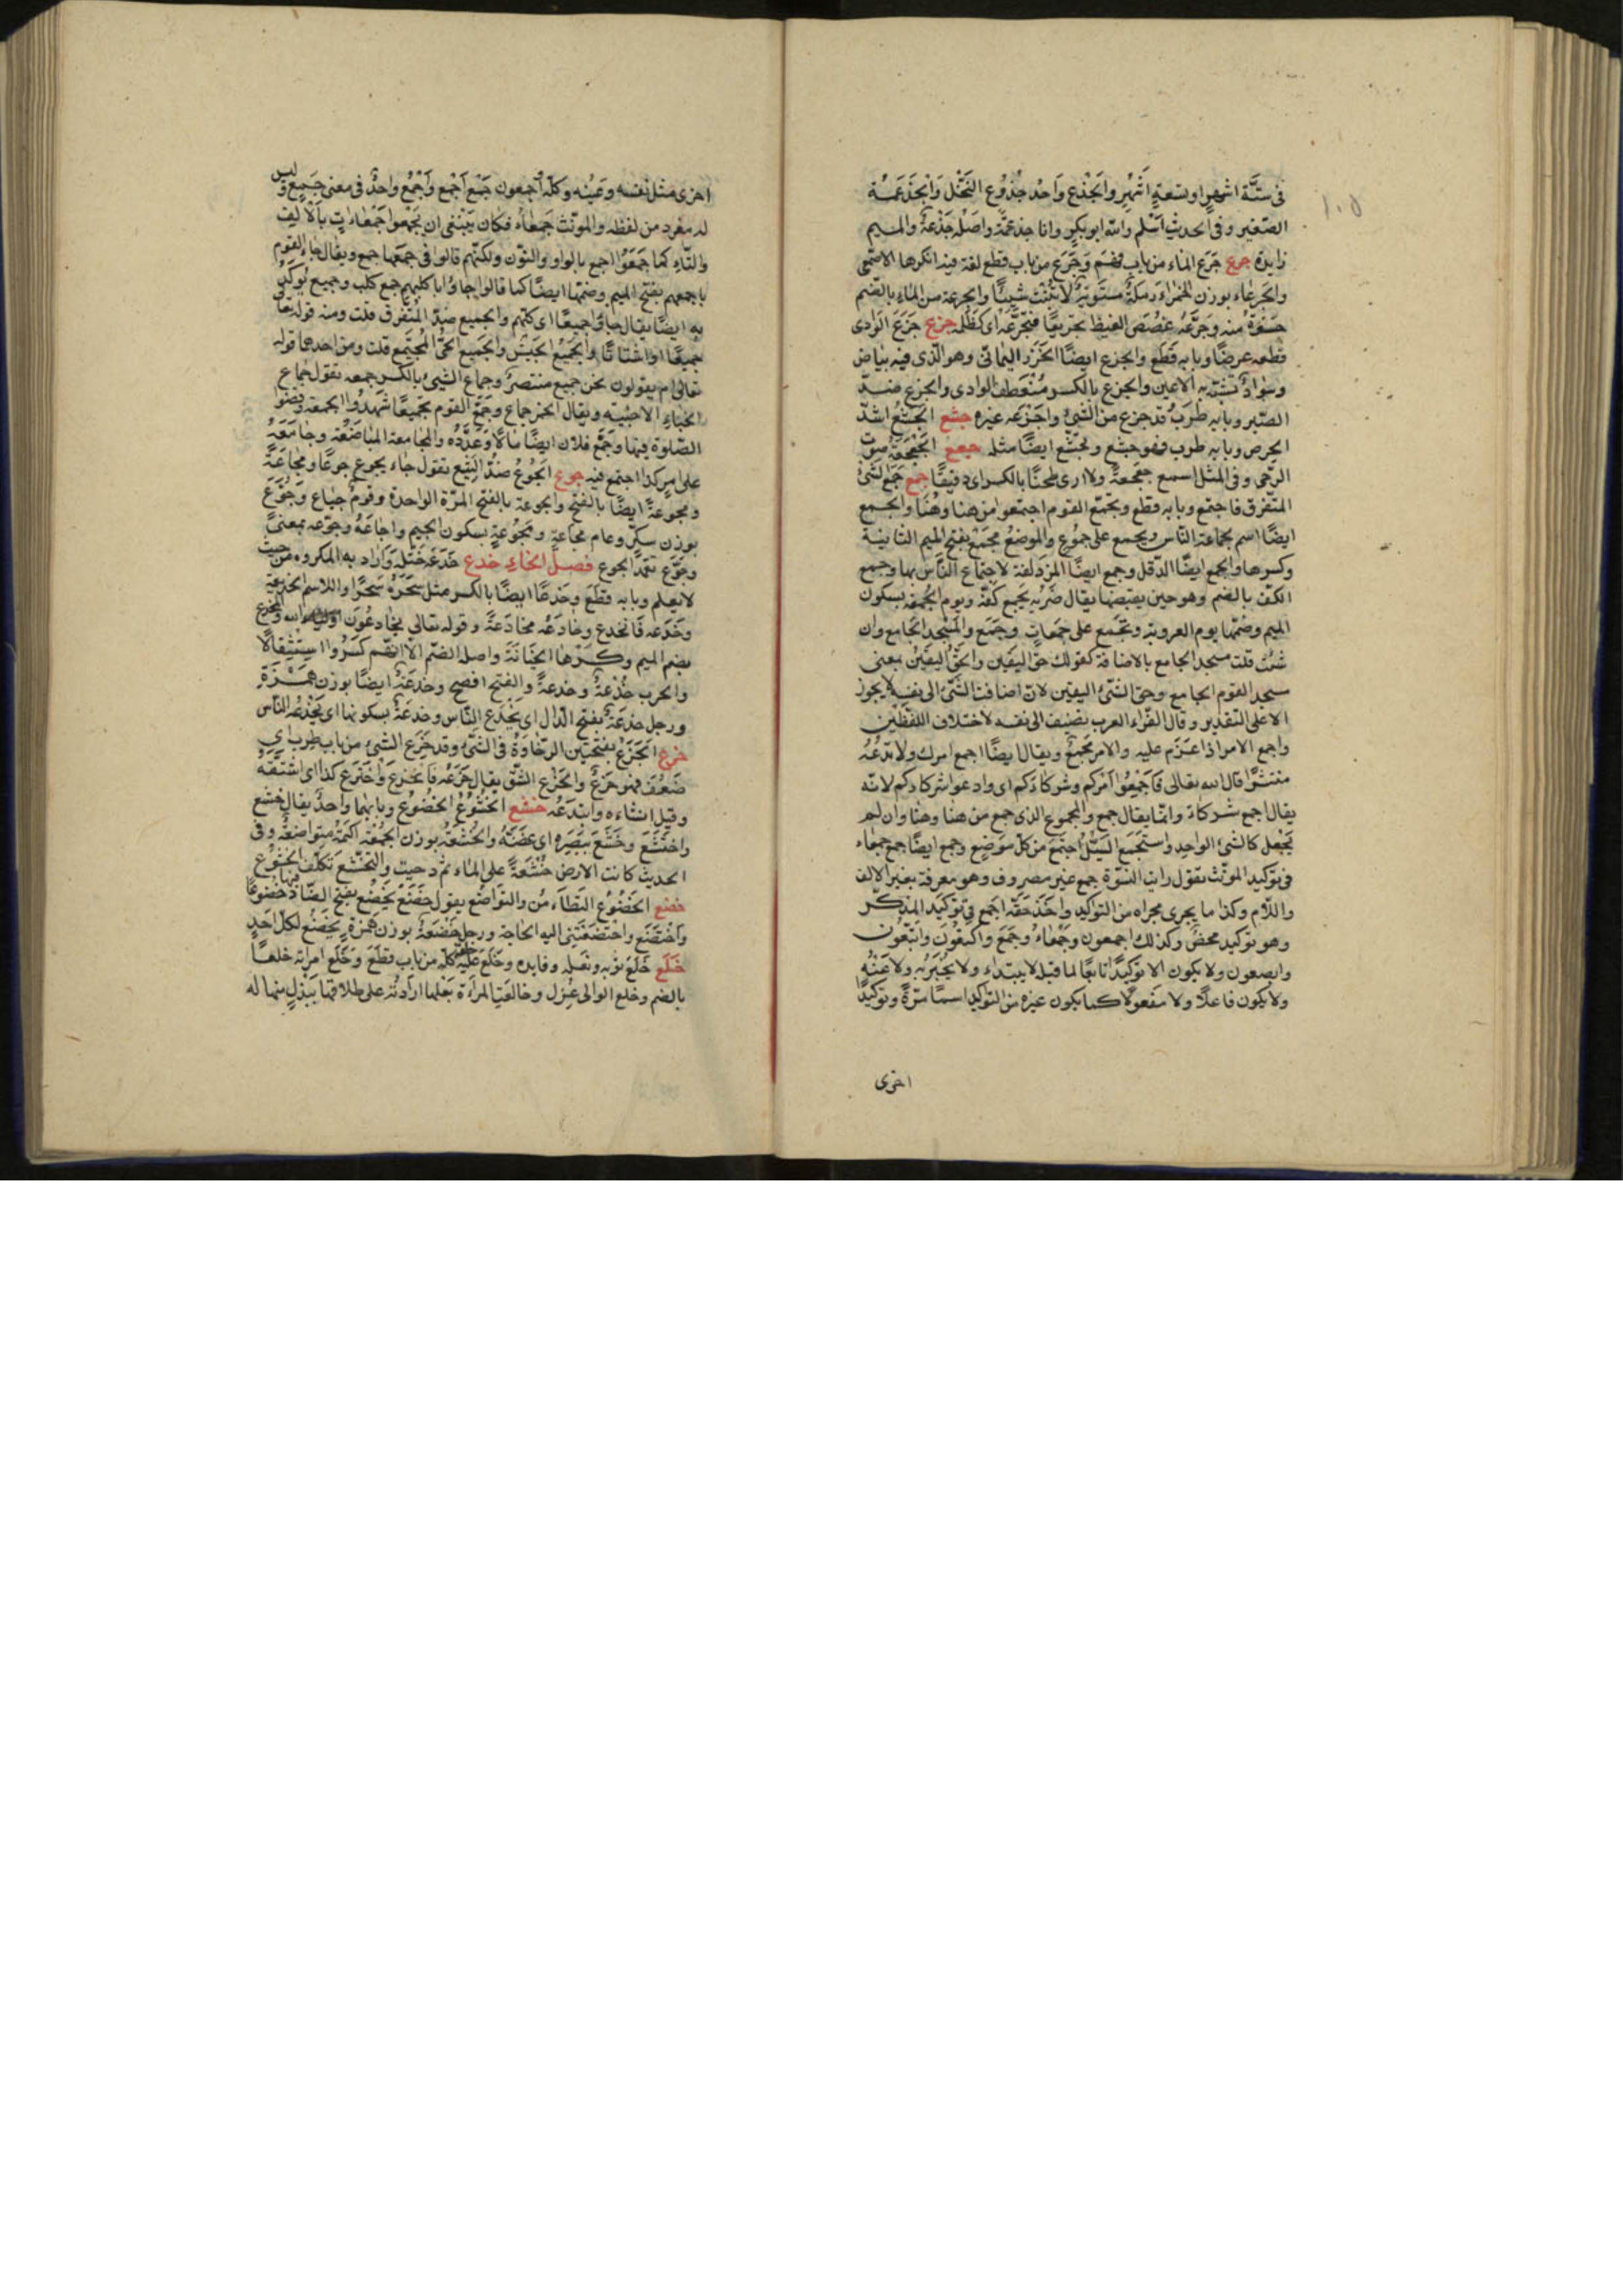 ١٠٥
في ستّة اشهر او تسعة اشهر والجذع واحد جذوع النخل والجذعمة
الصّغير وفي الحديث اسلم والله ابو بكر وانا جذعمة واصله جذعة والميم
زايدة جرع جرع الماء من باب فهم وجرع من باب قطع لغة فيه انكرها الاصمعي
والجرعاء بوزن الحمراء رملة مستوية لا تنبت شيئا والجرعة من الماء بالضم
حسوة منه وجرّعه غصص الغيظ تجريعا فتجرّعه اى كظمه جزع جزع الوادى
قطعه عرضا وبابه قطع والجزع ايضا الخرز اليمانى وهو الّذى فيه بياض
وسواد تشبّه به الاعين والجزع بالكسر منعطف الوادى والجزع ضدّ
الصّبر وبابه طرب وقد جزع من الشئ واجزعه غيره جشع الجشع اشدّ
الحرص وبابه طرب فهو جشع وتجشّع ايضا مثله جعع الجعجعة صوت
الرّحى وفى المثل اسمع جعجعة ولا ارى طحنا بالكسر اى دقيقا جمع جمع الشئ
المتفرّق فاجتمع وبابه قطع وتجمّع القوم اجتمعوا من هنا وهنا والجمع
ايضا اسم لجماعة النّاس ويجمع على جموع والموضع مجمع بفتح الميم الثانية
وكسرها والجمع ايضا الدّقل وجمع ايضا المزدلفة لاجتماع النّاس بها وجمع
الكفّ بالضم وهو حين يقبضها يقال ضربه بجمع كفّه ويوم الجمعة بسكون
الميم وضمّها يوم العروبة وتجمع على جمعات وجمع والمسجد الجامع وان
شئت قلت مسجد الجامع بالاضافة كقولك حقّ اليقين والحقّ اليقين بمعنى
مسجد القوم الجامع وحقّ الشّئ اليقين لانّ اضافة الشّئ الى نفسه لا يجوز
الا على التقدير وقال الفرّاء العرب تضيف الى نفسه لاختلاف اللفظين
واجمع الامر اذا عزم عليه والامر مجمع ويقال ايضا اجمع امرك ولا تدعه
منتشرا قال الله تعالى فاجمعوا امركم وشركاءكم اى وادعوا شركاءكم لانّه
يقال اجمع شركاءه وانما يقال جمع والمجموع الذى جمع من هنا وهنا وان لم
يجعل كالشئ الواحد واستجمع السيل اجتمع من كلّ موضع وجمع ايضا جمع جمعاء
فى توكيد المونّث تقول رايت النسوة جمع غير مصروف وهو معرفة بغير الالف
واللّام وكذا ما يجرى مجراه من التواكيد واخذ حقّه اجمع فى توكيد المذكّر
وهو توكيد محض وكذلك اجمعون وجمعاء وجمع واكتعون وابتعون
وابصعون ولا يكون الا توكيدا تابعا لما قبله لا يبتداء ولا يخبر به ولا عنه
ولا يكون فاعلا ولا مفعولا كما يكون غيره من التواكيد اسما مرّة وتوكيدا
اخرى
اخرى مثل نفسه وعينه وكلّه اجمعون جمع اجمع واجمع واحد فى معنى جمع وليس
له مفرد من لفظه والمونّث جمعاء فكان ينبغى ان يجمعوا جمعاءات بالالف
والتّاء كما جمعوا اجمع بالواو والنّون ولكنّهم قالوا فى جمعها جمع ويقال جاء القوم
باجمعهم بفتح الميم وضمّها ايضا كما قالوا جاؤا باكلبهم جمع كلب وجميع يوكّد
به ايضا يقال جاؤا جميعا اى كلّهم والجميع ضدّ المتفرّق قلت ومنه قوله تعا
جميعا او اشتاتا والجميع الجيش والجميع الحىّ المجتمع قلت ومن احدهما قوله
تعالى ام يقولون نحن جميع منتصر وجماع الشئ بالكسر جمعه تقول جماع
الخباء الاخبية ويقال الخمر جماع وجمّع القوم تجميعا شهدوا الجمعة وقضوا
الصّلوة فيها وجمّع فلان ايضا مالا وعدّده والمجامعة المباضعة وجامعه
على امر كذا اجتمع فيه جوع الجوع ضدّ الشبع تقول جاع يجوع جوعا ومجاعة
ومجوعة ايضا بالفتح والجوعة بالفتح المرّة الواحدة وقوم جياع وجوّع
بوزن سكّر وعام مجاعة ومجوعة بسكون الجيم واجاعه وجوّعه بمعنى
وتجوّع تعمّد الجوع فصل الخاء خدع خدعه ختله واراد به المكروه من حيث
لا يعلم وبابه قطع وخدعا ايضا بالكسر مثل سحره سحرا والاسم الخديعة
وخدعه فانخدع وخادعه مخادعة وقوله تعالى يخادعون الله والمخدع
بضم الميم وكسرها الخزانة واصله الضّم الا انّهم كسروا استثقالا
والحرب خدعة وخدعة والفتح افصح وخدعة ايضا بوزن همزة
ورجل خدعة بفتح الدّال اى يخدع النّاس وخدعة بسكونها اى يخدعه النّاس
خرع الخرع بفتحتين الرّخاوة فى الشئ وقد خرع الشئ من باب طرب اى
ضعف فهو خرع والخرع الشّقّ يقال خرعه فانخرع واخترع كذا اى اشتقّه
وقيل انشاءه وابتدعه خشع الخشوع الخضوع وبابهما واحد يقال خشع
واختشع وخشع ببصره اى غضّه والخشعة بوزن الجمعة اكمة متواضعة وفى
الحديث كانت الارض خشعة على الماء ثم دحيت والتخشّع تكلّف الخشوع
خضع الخضوع التطامن والتواضع يقول خضع يخضع بفتح الضّاد فيهما خضوعا
واختضع واخضعتنى اليه الحاجة ورجل خضعة بوزن همزة يخضع لكلّ احد
خلع خلع ثوبه ونعله وقايده وخلع عليه خلعة كلّه من باب قطع وخلع امراته خلعا
بالضم وخلع الوالى عزل وخالعت المرأة بعلها ارادته على طلاقها ببذل منها له